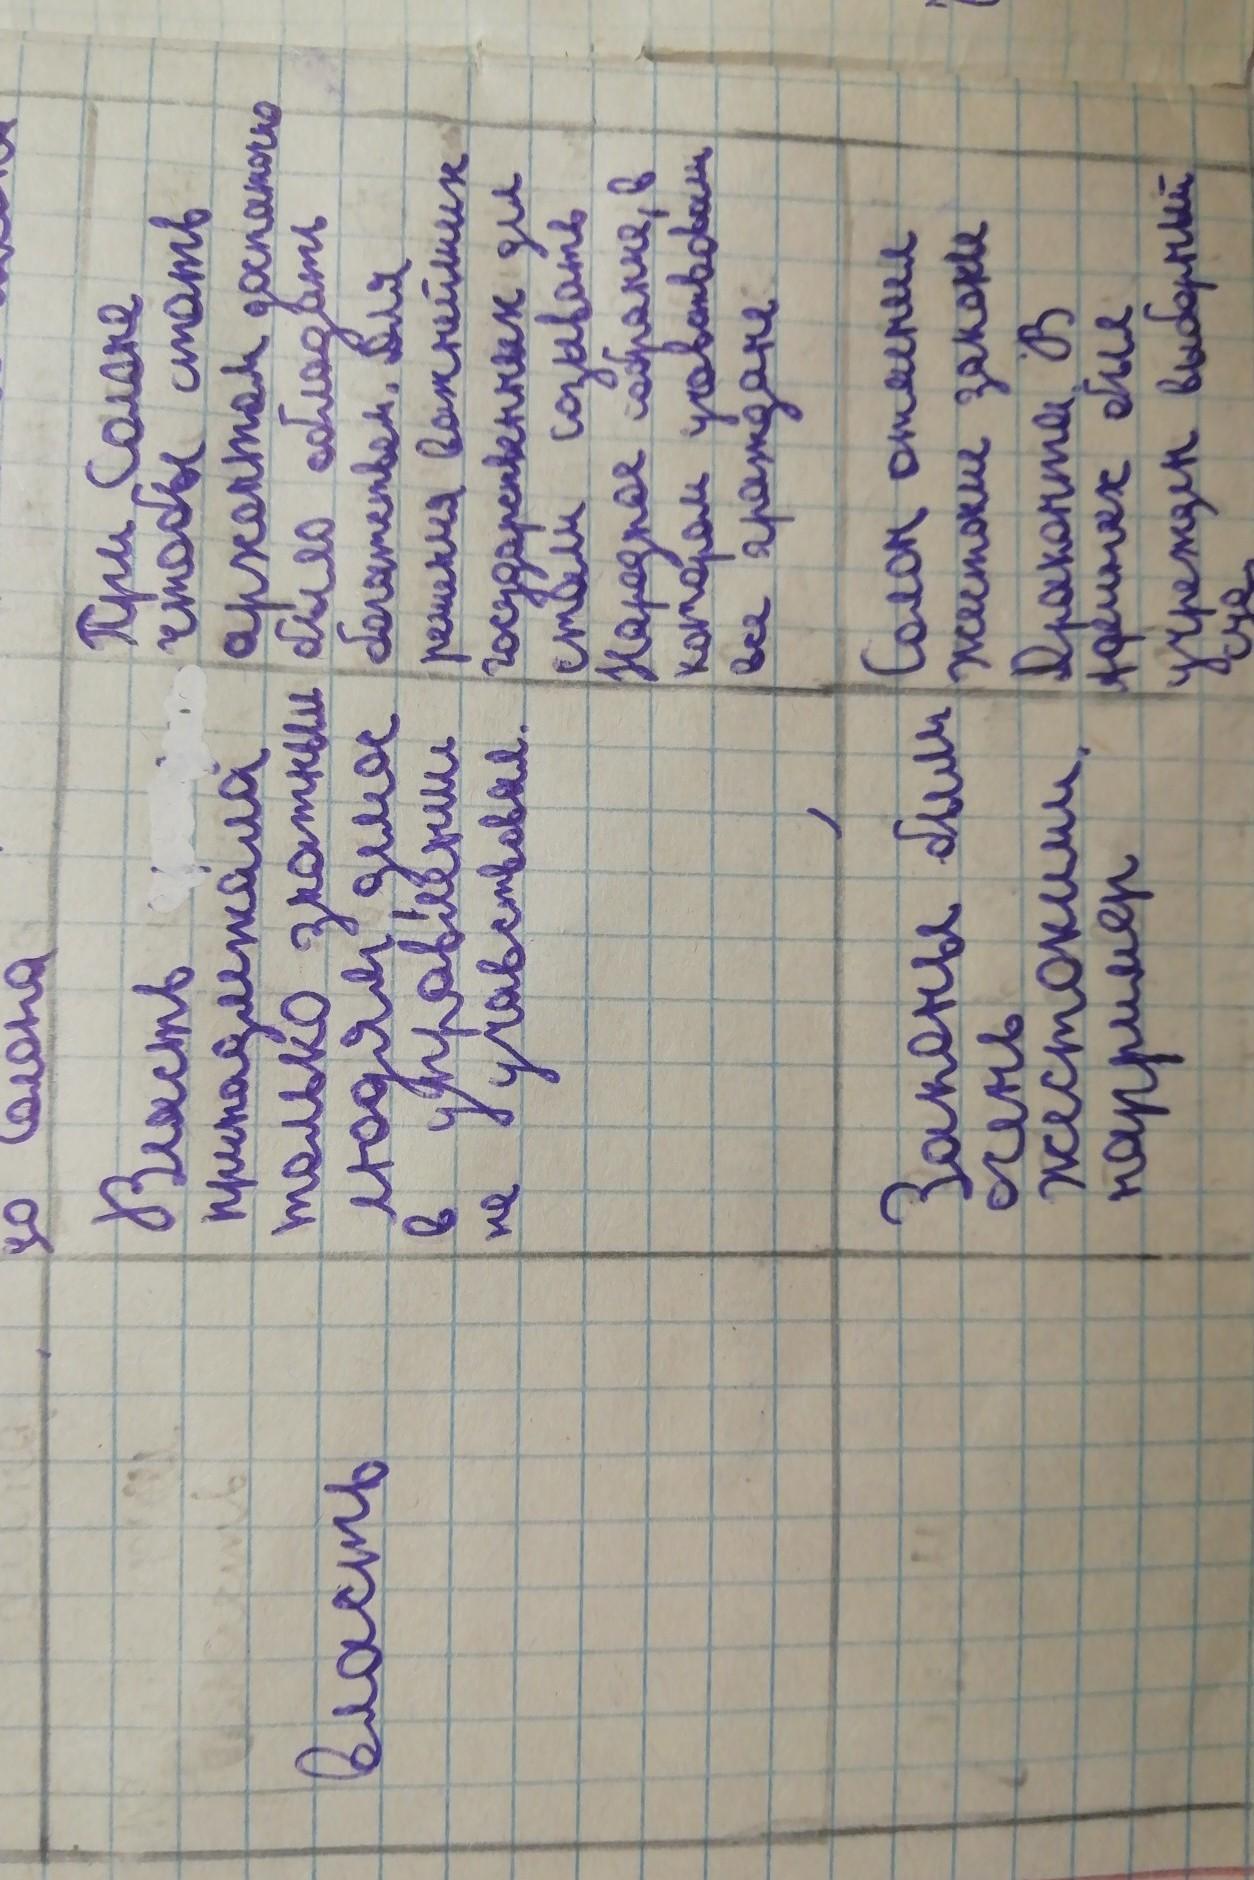 до Солона
Власть
Власть
принадлежала
только знатным
людям демос
в управлении
не участвовал.
При Солоне
чтобы стать
архонтом достаточно
было обладать
богатством. Для
решения важнейших
государственных дел
стали созывать
Народное собрание, в
котором участвовали
все граждане
Законы были
очень
жестокими,
например
Солон отменил
жестокие законы
Драконта. В
Афинах был
учрежден выборный
суд